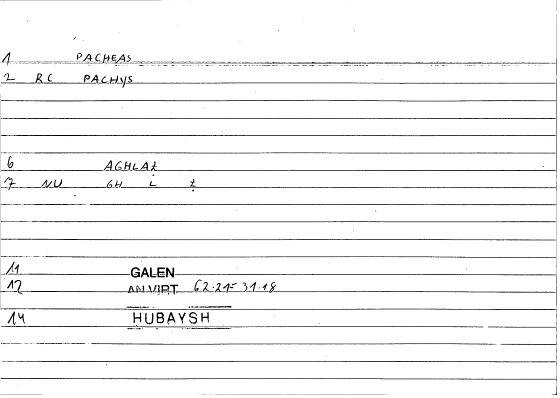 1 PACHEAS
2 RC PACHYS
6 AGHLAẒ
7 NU GH L Ẓ
11 GALEN
12 AN VIRT 62.21 = 31.18
14 HUBAYSH